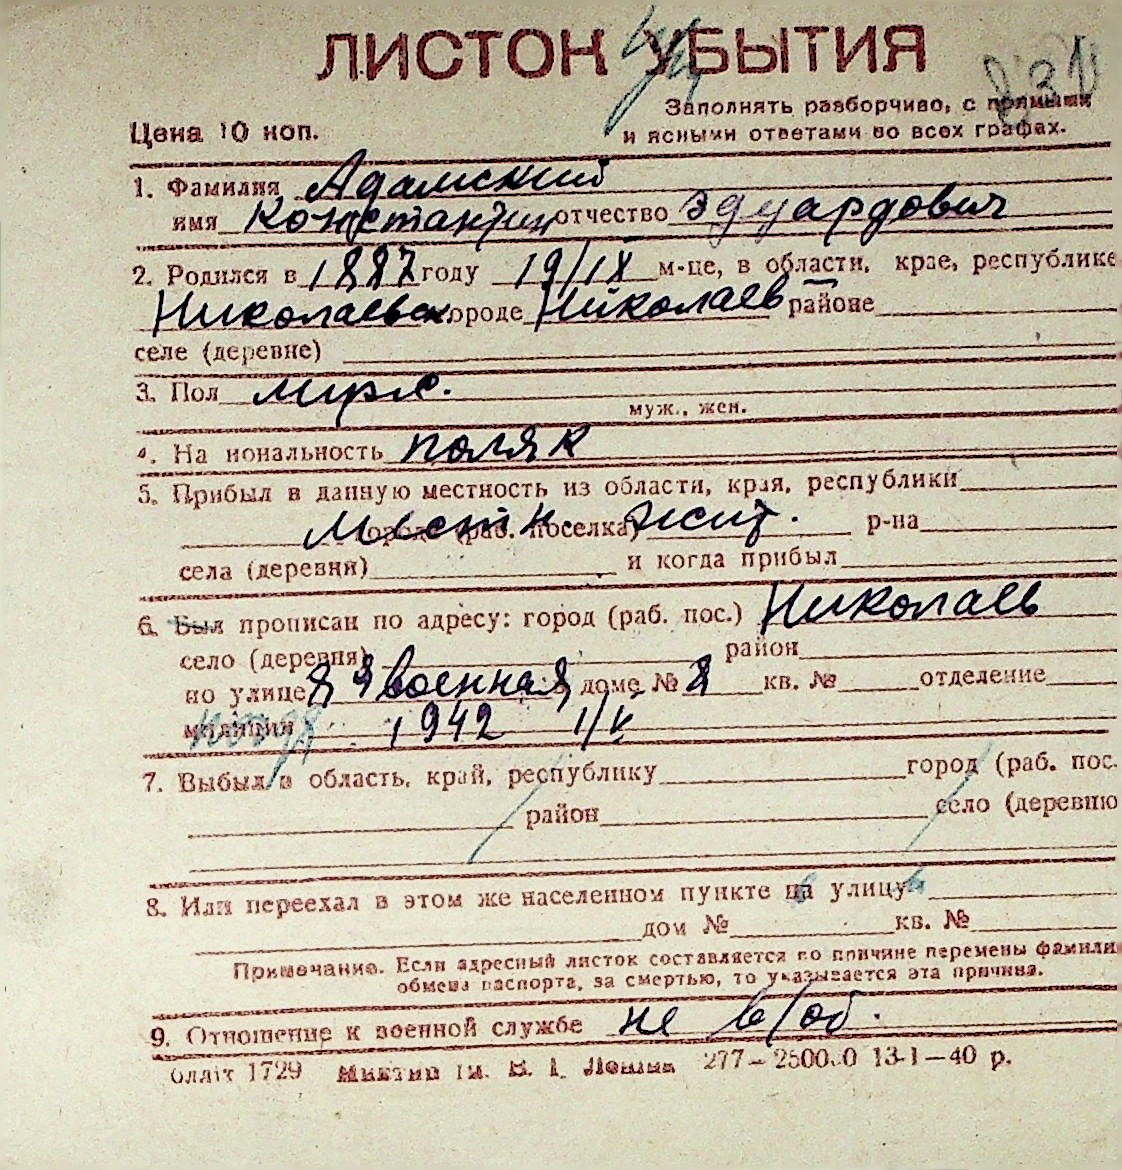 ЛИСТОК УБЫТИЯ
Цена 10 коп.
Заполнять разборчиво, с прямыми
и ясными ответами во всех графах.
1. Фамилия Адамский
имя Константин отчество Эдуардович
2. Родился в 1887 году 19/IX м-це, в области, крае, республике
Николаевск городе Николаев районе
селе (деревне)
3. Пол муж.
муж., жен.
4. На иональность поляк
5. Прибыл в данную местность из области, края, республики
города (раб. поселка) местн. жит. р-на
села (деревни) и когда прибыл
6. Был прописан по адресу: город (раб. пос.) Николаев
село (деревня) район
по улице 8 Военная доме № 8 кв. № отделение
милиции 1942
7. Выбыл в область, край, республику город (раб. пос.
район село (деревню
8. Или переехал в этом же населенном пункте на улицу
дом № кв. №
Примечание. Если адресный листок составляется по причине перемены фамили
обмена паспорта, за смертью, то указывается эта причина.
9. Отношение к военной службе не в/об.
1729 277—250000 13-1—40 р.